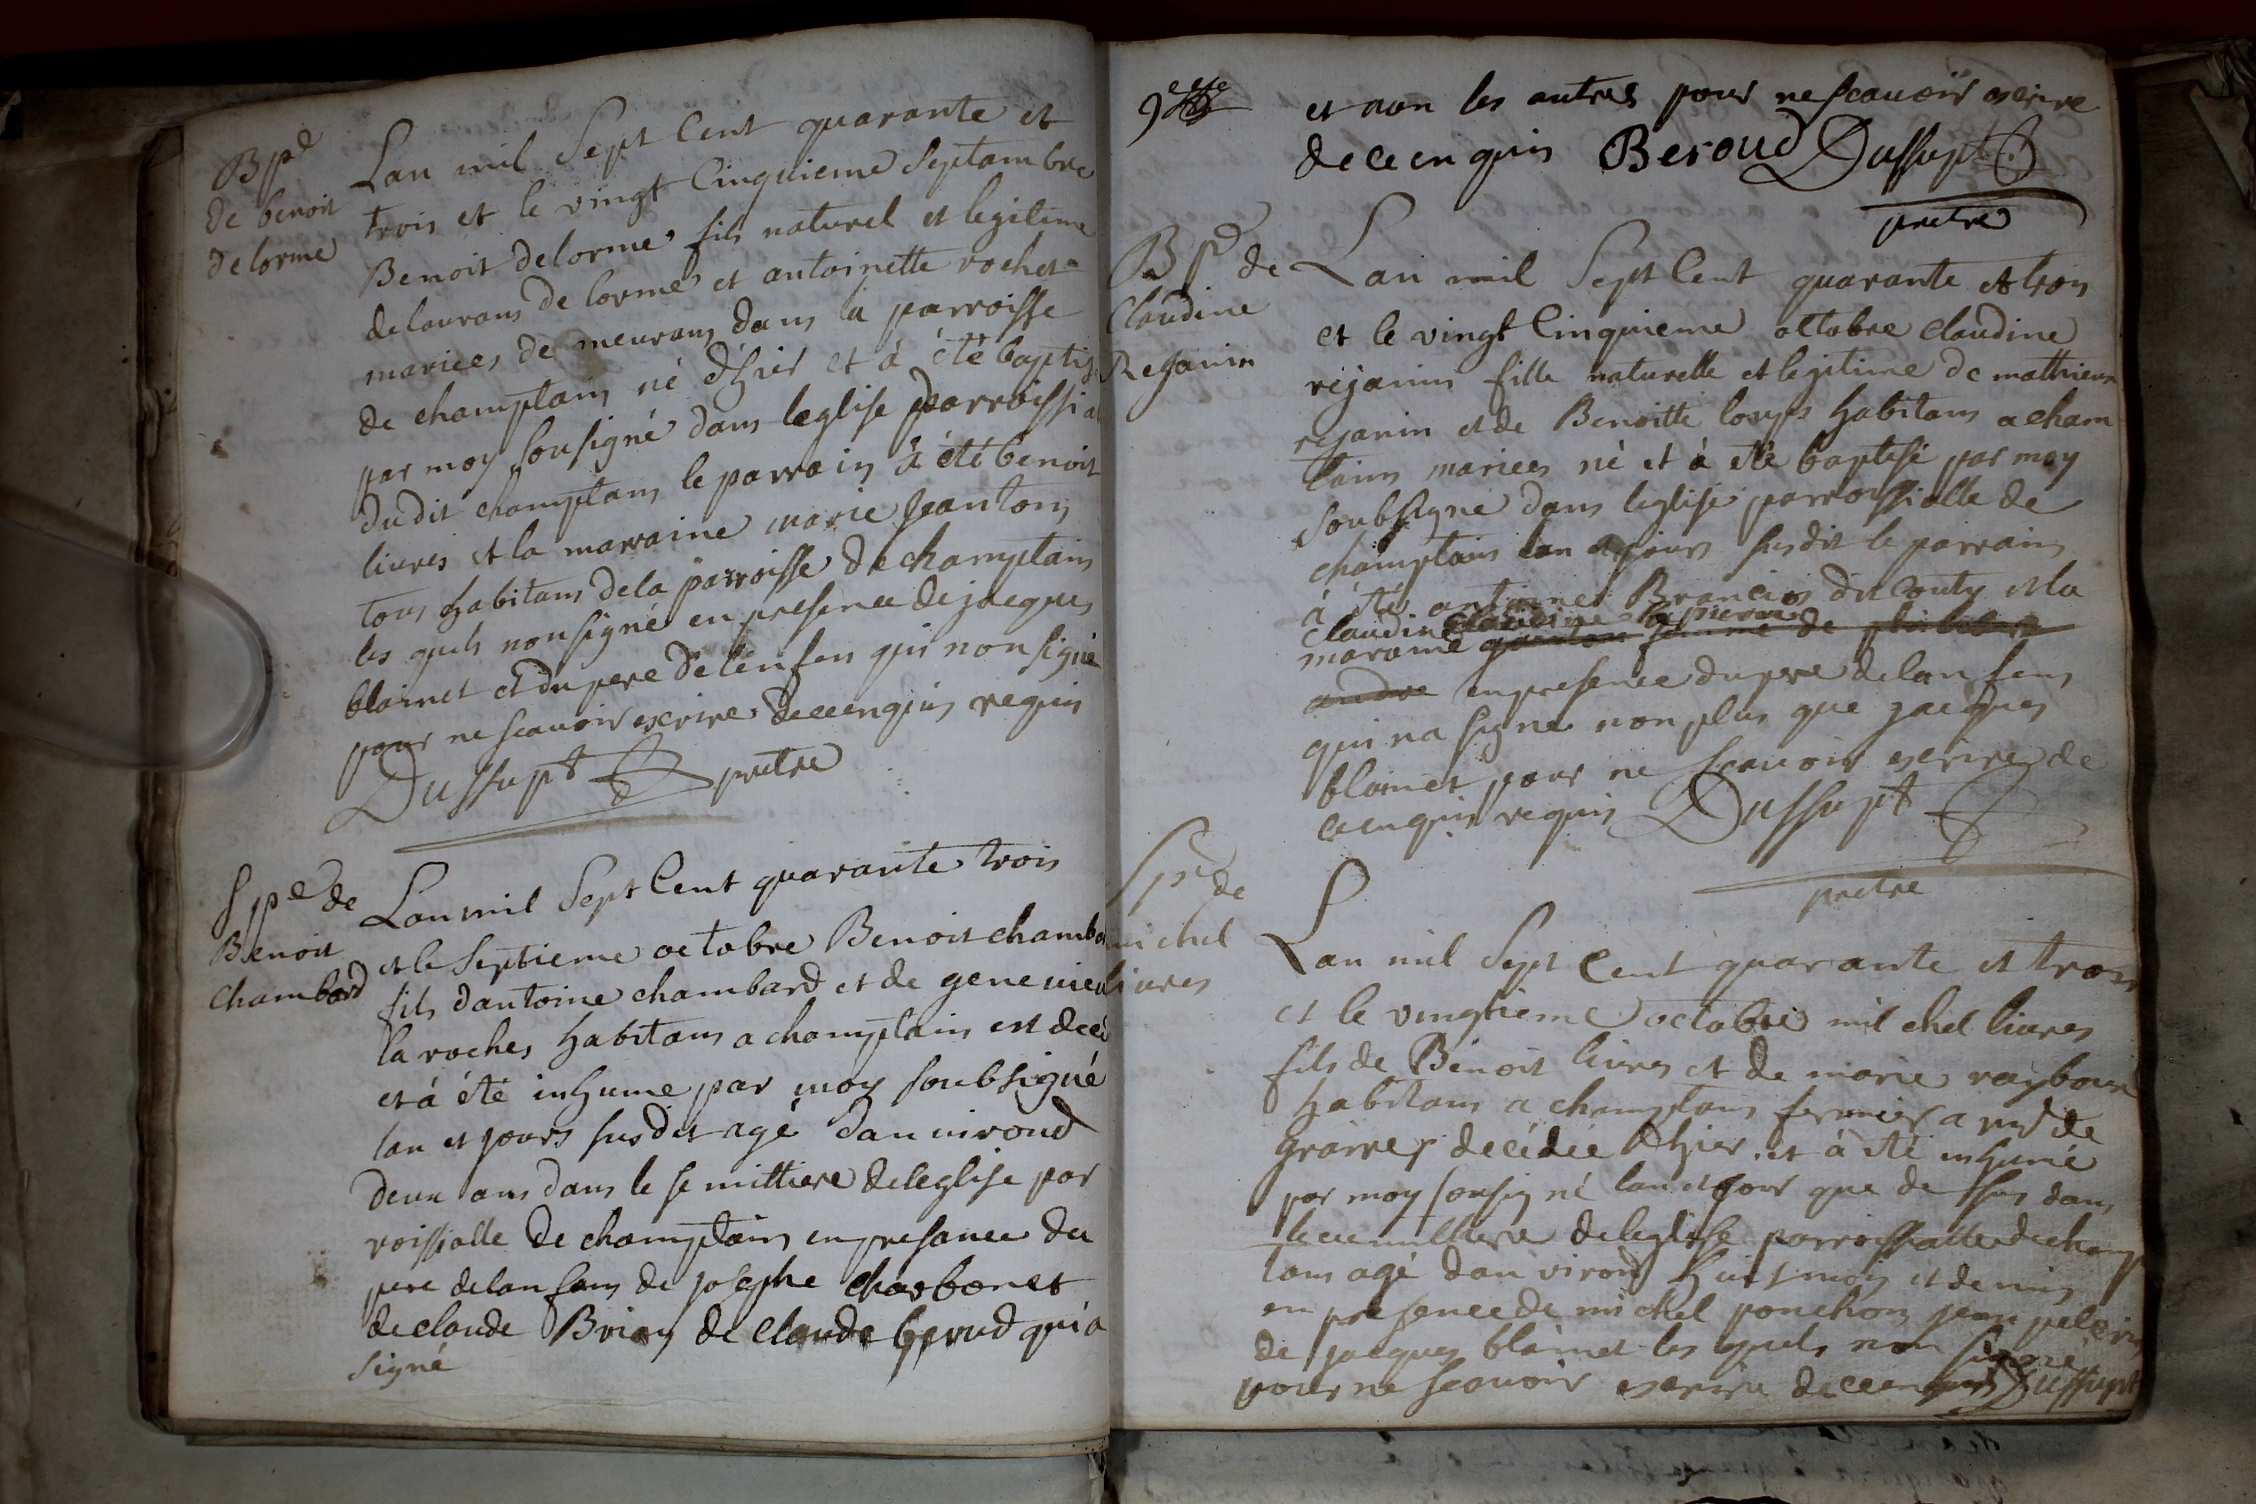 Bpe
de benoit
delorme
Lan mil Sept Cent quarante et
trois et le vingt Cinquieme Septambre
Benoit delorme fils naturel et legitime
de laurans de lorme et antoinette rochet
mariees de meurans dans la parroisse
de champtain né dhier et à été baptisé
par moy sousigné dans leglise parroissial
dudit champtain le parrain à été benoit
liures et la marraine marie jeanton
tous habitans dela parroisse de champtain
les quels non signé en presence de jacques
blainet et du pere de lenfen qui non signé
pour ne scauoir escrire de ce enquis requis
Dussupt pretre
Spe de
Benoit
Chambard
Lan mil Sept Cent quarante trois
et le septieme octobre Benoit chamba
fils dantoine chambard et de geneuieu
la roches habitans a champtain est decé
et à été inhume par moy soubsigné
lan et jours susdit agé danuiroud
deux ans dans le semittiere de leglise par
roissialle de champtain en presance du
pere de lanfans de josephe charbonet
de claude Brian de claude beroud qui a
signé
et non les autres pour ne scauoir escrire
de ce enquis Beroud Dussupt
pretre
Bpe de
Claudine
Rejanin
Lan mil Sept Cent quarante et trois
et le vingt Cinquieme octobre claudine
rejanin fille naturelle et legitime de mathieu
rejanin et de Benoitte loups habitans a cham
tain mariees né et à été baptisé par moy
soubsigne dans leglise parroissialle de
champtain lan et jours susdit le parrain
à été antoine Brancios du Conty et la
claudine
maraine femme de
andre en presence du pere de lan fens
qui na signe non plus que jacques
blainet pour ne scauoir escrire de
ce enquis requis Dussupt
pretre
Spe de
michel
liures
Lan mil Sept Cent quarante et trois
et le vingtieme octobre mil chel liures
fils de Benoit liures et de marie
habitans a champtain fermier a mr de
decédée dhier et à été inhumé
par moy sousigné lan et jour que de ssus dans
le cemittiere de leglise parroissialle de champ
tain agé danviron huit mois et demis
en presence de michel ponchon jean pelerin
de jacques blainet les quels non signé
pour ne scauoir escrire de ce enquis Dussupt